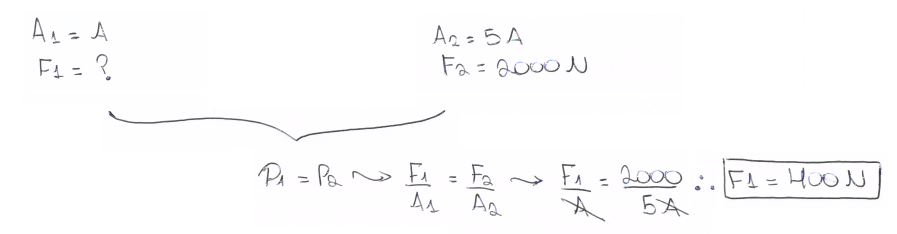 A1 = A
F1 = ?
A2 = 5A
F2 = 2000 N
P1 = P2 ⤳ F1/A1 = F2/A2 ⤳ F1/A = 2000/5A ∴ F1 = 400 N